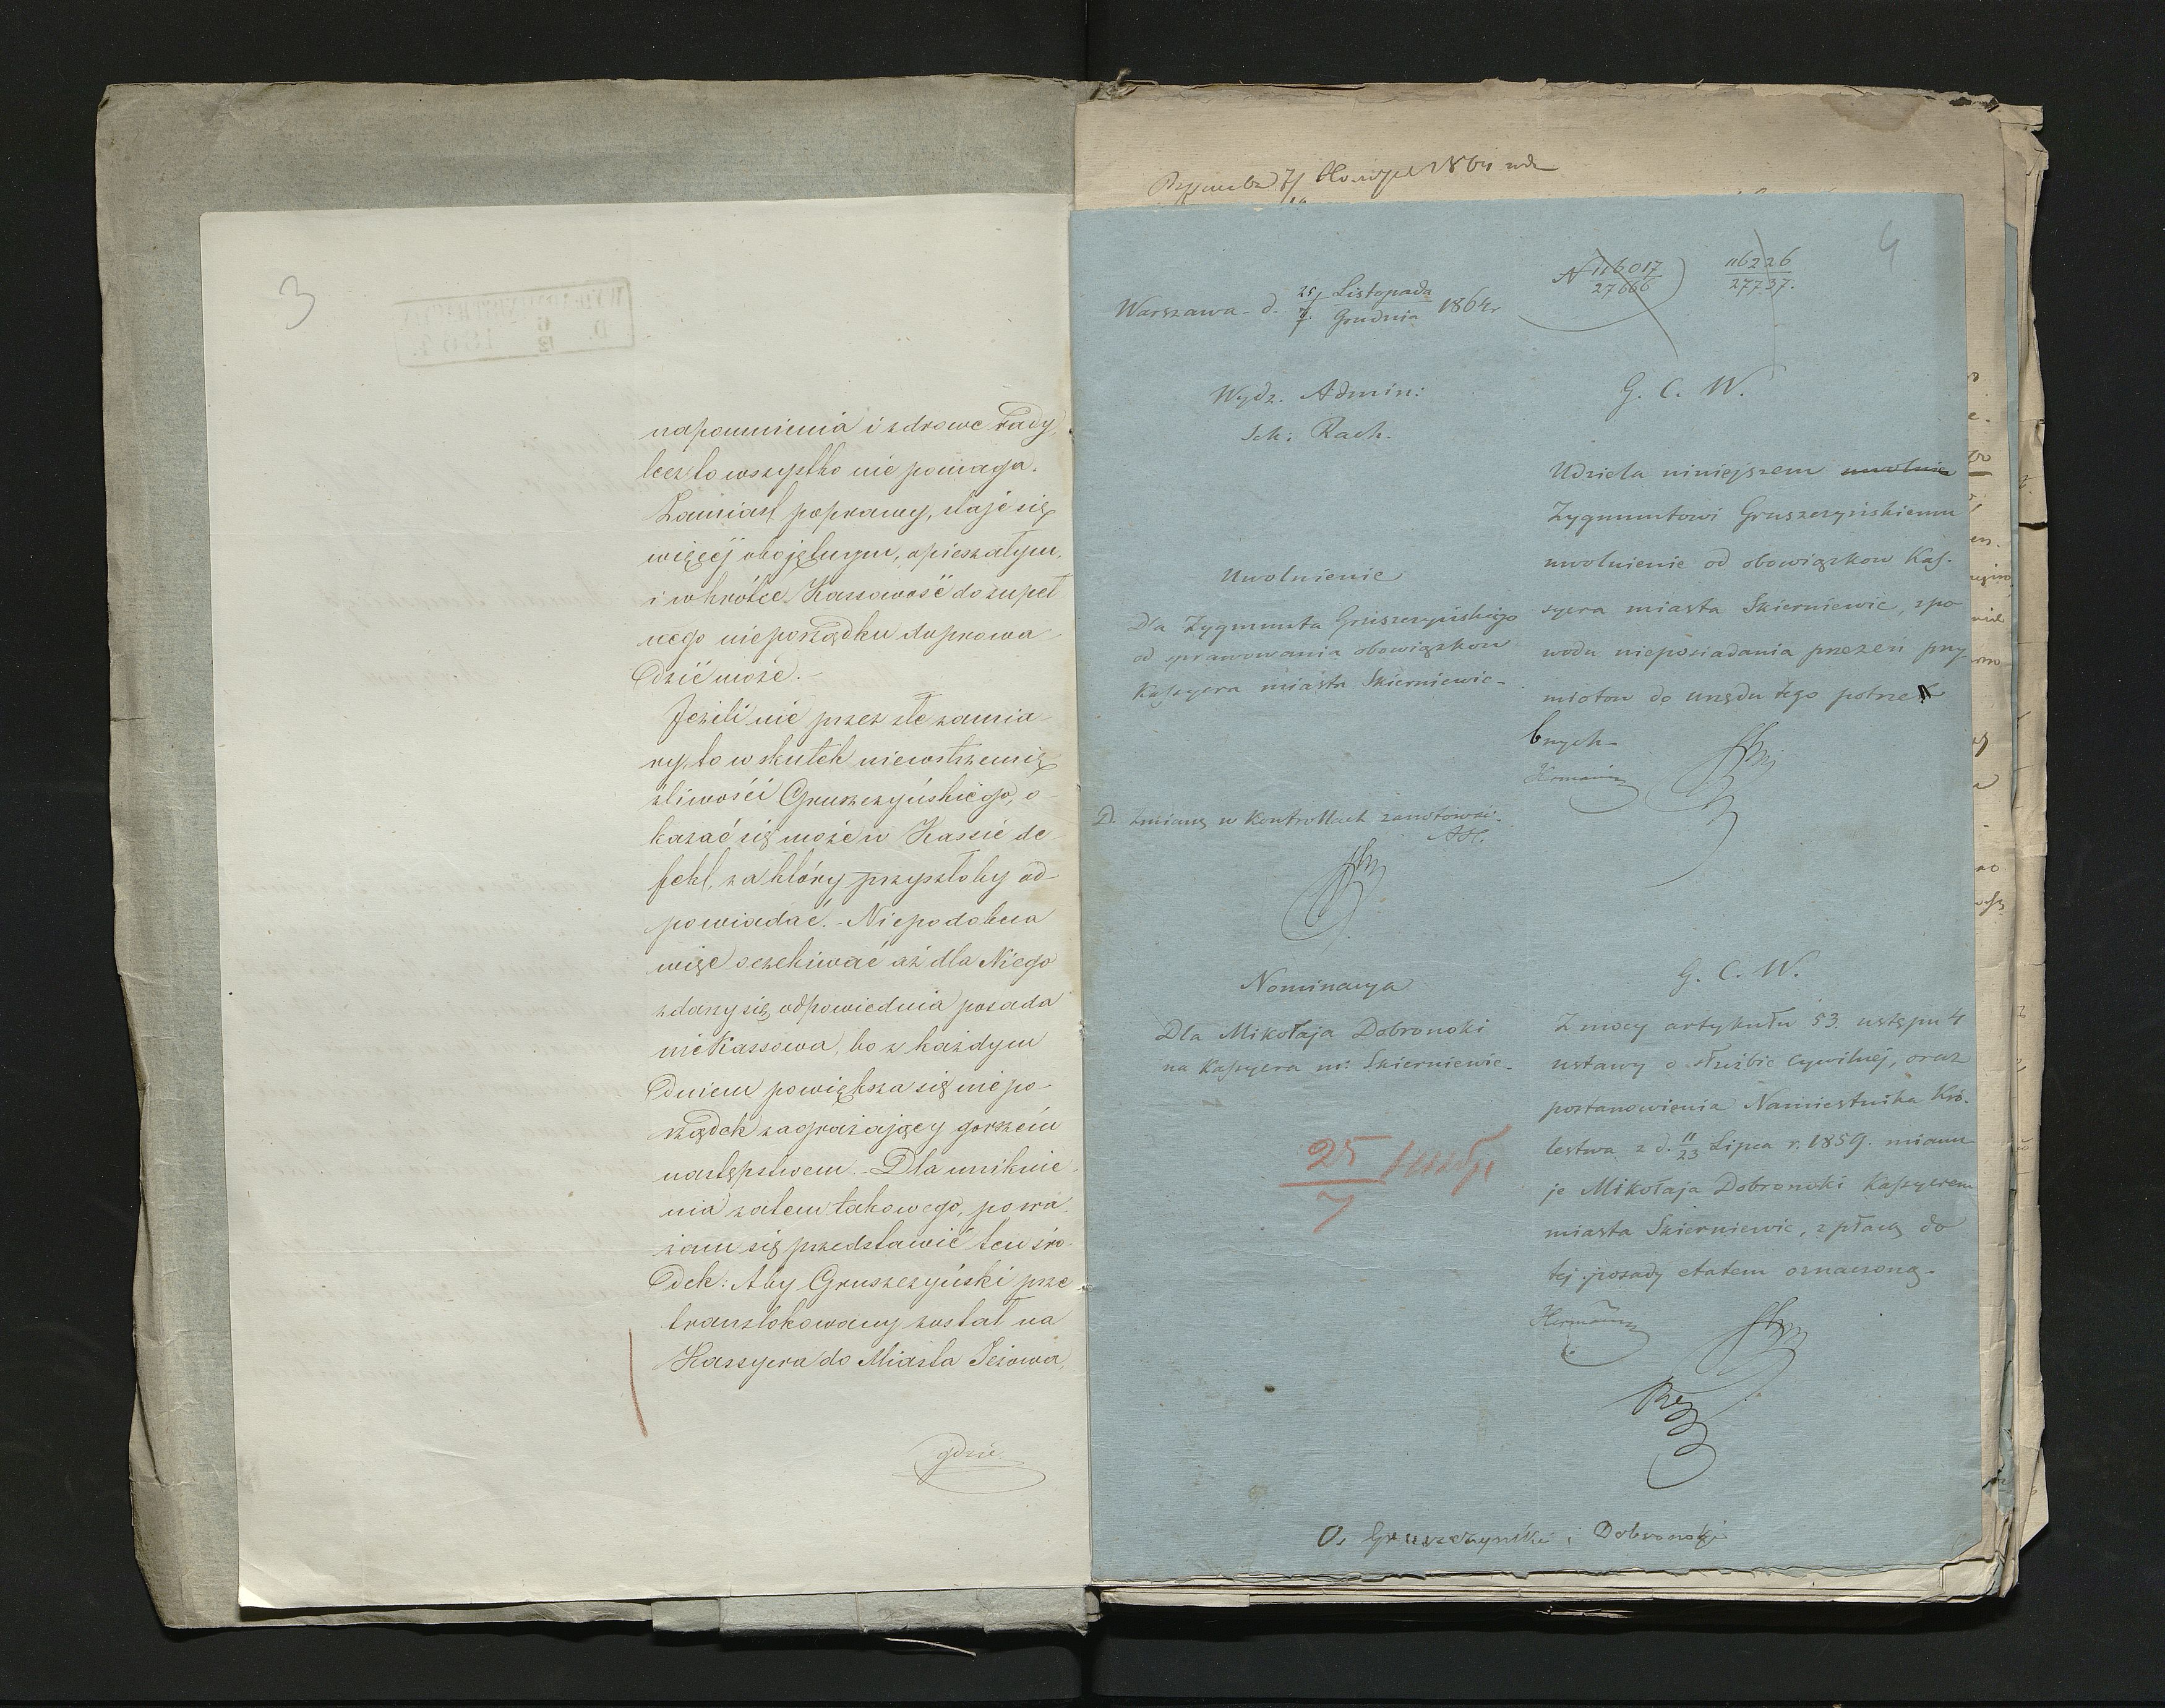 3
napomnienia i zdrowe rady,
lecz to wszystko nie pomaga.
Zamiast poprawy, staje się
więcéj obojętnym, opieszałym,
i wkrótce Kassowość do zupeł
nego nieporządku doprowa
dzić może.
Jeżeli nie przez złe zamia
ry, to w skutek niewstrzemię
źliwości Gruszczyńskiego, o-
kazać się może w Kassie de
fekt, za który przyszłoby od-
powiadać. - Niepodobna
więc oczekiwać aż dla Niego
zdarzy się odpowiednia posada
nie Kassowa, bo z każdym
dniem powiększa się niepo-
rządek zagrażający gorszém
następstwem. Dla uniknie
nia zatem takowego, powa
żam się przedstawić ten śro
dek: Aby Gruszczyński prze
translokowany został na
Kassyera do Miasta Jeżowa,
gdzie
1864
4
Warszawa d. 25/7 Listopada/Grudnia 1864 r
N 116017/27666
116226/27737.
Wydz. Admin:
Sek: Rach.
Uwolnienie
Dla Zygmunta Gruszczyńskiego
od sprawowania obowiązkow
Kassyera miasta Skierniewic-
D. zmianę w Kontrollach zanotować.
G. C. W.
Udziela niniejszem uwolnie
Zygmuntowi Gruszczyńskiemu
uwolnienie od obowiązkow Kas-
syera miasta Skierniewic, z po
wodu nieposiadania przezeń przy
miotow do urzędu tego potrze
bnych-
Hermann
Nominacya
Dla Mikołaja Dobronoki
na Kassyera m: Skierniewic-
25/7
G. C. W.
Z mocy artykułu 53. ustępu 4
ustawy o służbie cywilnéj, oraz
postanowienia Namiestnika Kró-
lestwa z d. 11/23 Lipca r. 1859. mianu
je Mikołaja Dobronoki Kassyerem
miasta Skierniewic, z płacą do
tej posady etatem oznaczoną-
Hermann
O. Gruszczyński i Dobronoki